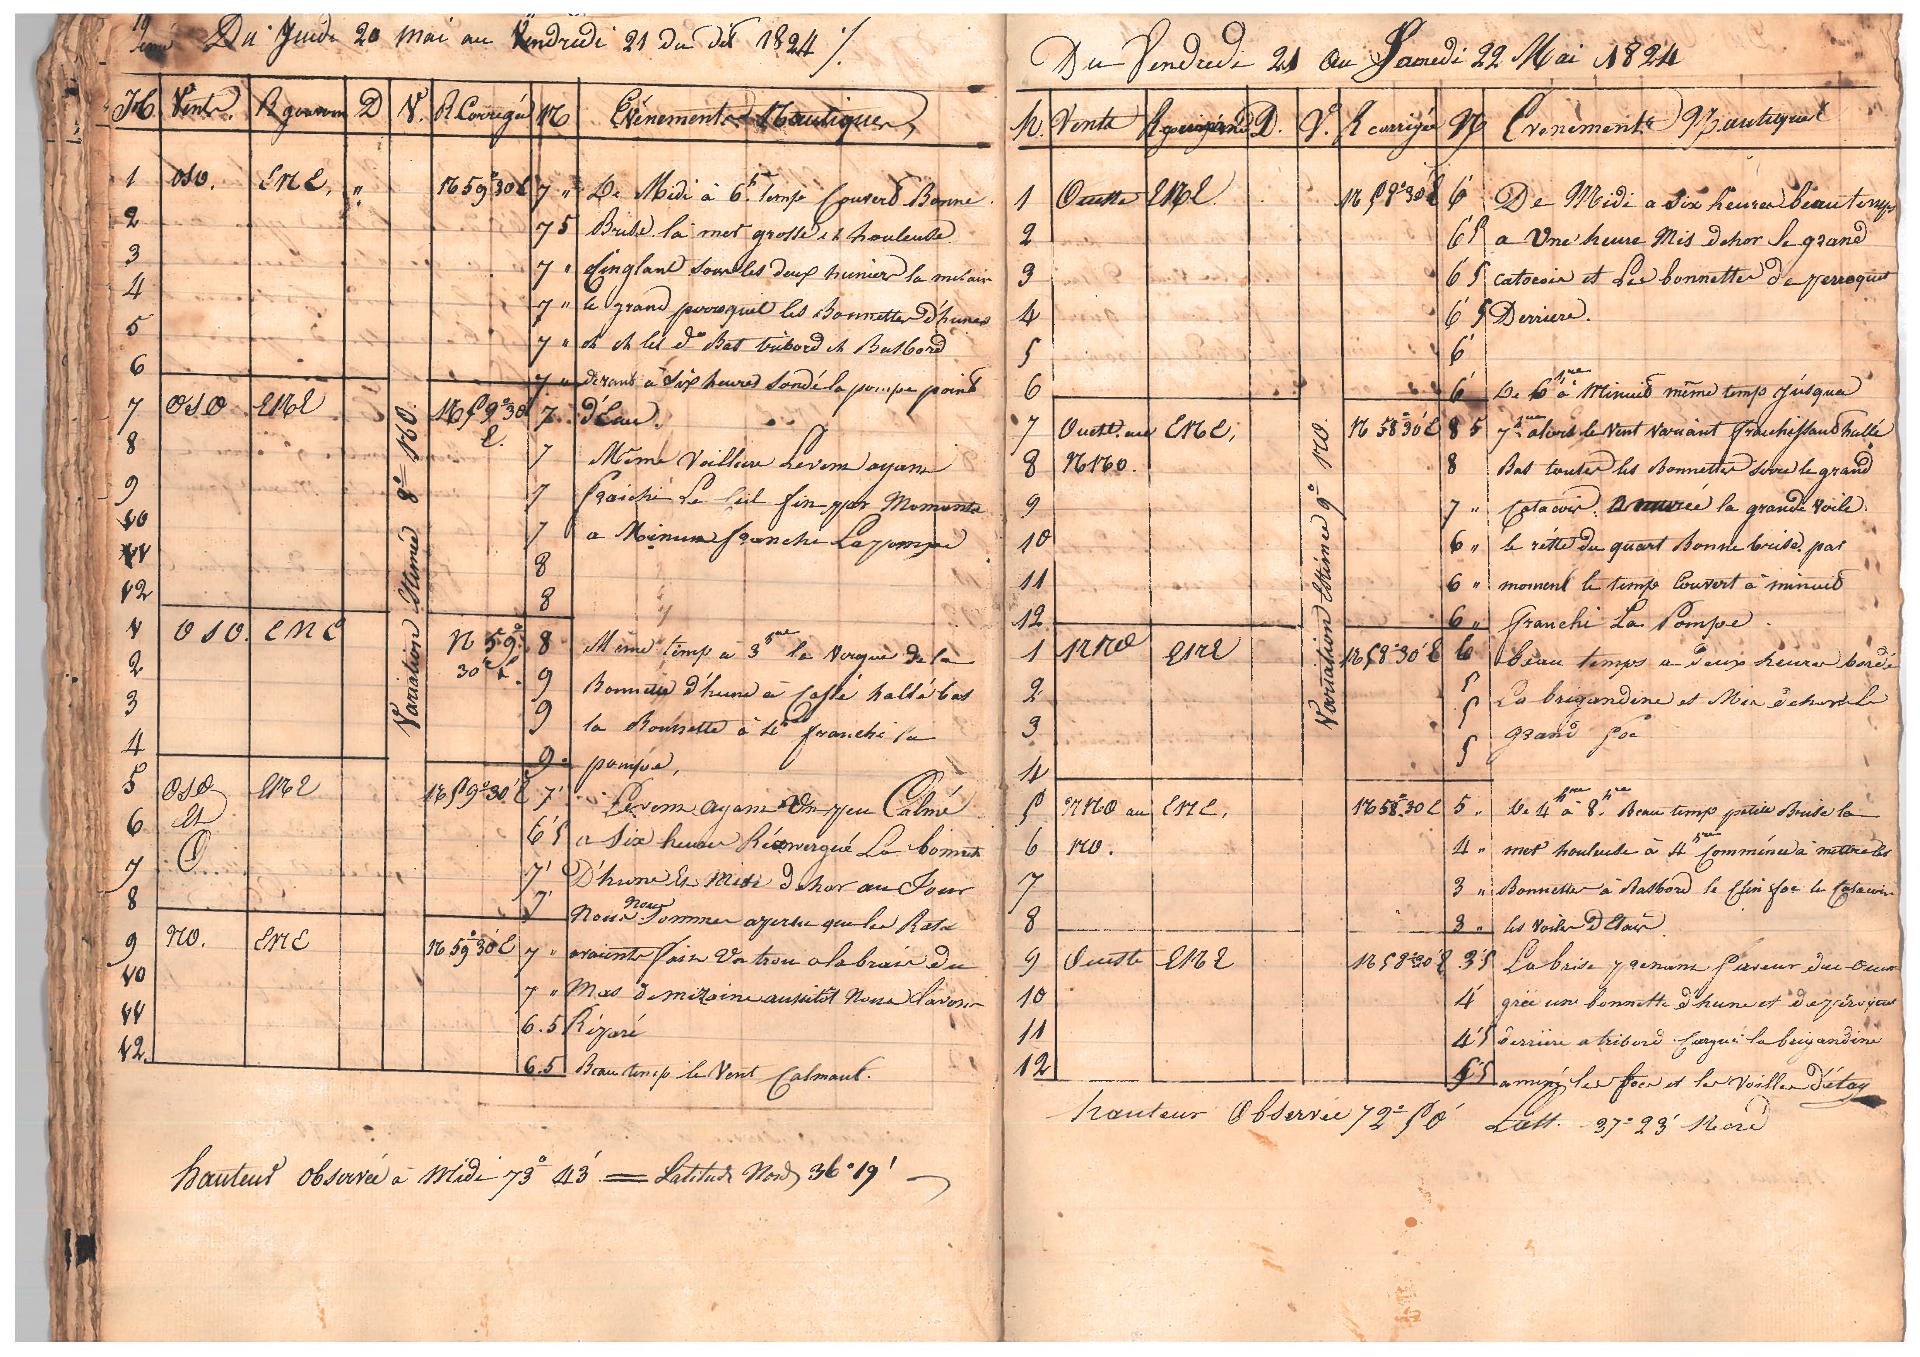 19
Du Jeudi 20 mai au Vendredi 21 du dit 1824
H. Vents. R gouvern D V. R Corrigé N Evénements Nautiques
1 OSO. ENE. „ N 59° 30 E 7 „ De Midi à 6h temp Couvert Bonne
2 7 5 Brise la mer grosse et houleuse
3 7 „ Cinglant sous les deux hunier la misain
4 7 „ le grand perroquet les Bonnettes d'hunes
5 7 „ et les d° Bas tribord et Basbord
6 7 „ devant à six heures sondé la pompe point
7 OSO ENE N 59° 30 E. 7 d'Eau.
8 7 Même Voillure Le vent ayant
9 7 fraichi Le Ciel fin par Moments
10 7 a Minuit franchi La pompe
11 8
12 8
Variation Estimée 8° NO.
1 OSO. ENE N 59° 30' E. 8 Même temp à 3 hres la vergue de la
2 9 Bonnette d'hune à Cassé hallé bas
3 9 la Bonnette à 4h franchi la
4 9 „ pompe,
5 OSO ENE N 59° 30' E 7' Le vent ayant Un peu Calmé
6 et 6' 5 a Six heures Réenvergué La bonnet
7 O 7' D'hune Et Mise dehor au Jour
8 7' Nous Nous Sommes aperçu que les Rats
9 NO. ENE N 59° 30' E 7 „ avaients fait Un trou a la braie du
10 7 „ Mas de mizaine aussitôt Nous l'avons
11 6.5 Réparé
12. 6.5 Beau temp le Vent Calmant.
hauteur observée à Midi 73° 43' = Latitude Nord 36° 19'
Du Vendredi 21 au Samedi 22 Mai 1824
h. Vents R D. V. R corrigée N Evenements Nautiques
1 Ouest ENE N 58° 30' E 6 De Midi a Six heures beau temps
2 6' 5 a Une heure Mis dehor le grand
3 6 5 catacoi et Les bonnettes de perroquet
4 6' 5 Derriere.
5 6'
6 6' De 6 hres à Minuit même temp jusqua
7 Ouest au ENE. N 58° 30' E 8 5 7 hres alors le Vent Variant fraichissant hallé
8 NNO. 8 Bas toutes les Bonnettes serré le grand
9 7 „ Catacoi. Amurée la grande Voile.
10 6 „ le reste du quart Bonne brise par
11 6 „ moment le temp Couvert à minuit
12 6 „ franchi La Pompe.
Variation Estimée 9° NO
1 NNO ENE N 58° 30' E 6 beau temps a deux heures bordé
2 5 La brigandine et Mis dehors le
3 5 grand foc
4 5
5 NNO au ENE. N 58° 30 E 5 „ De 4 hres à 8 hres Beau temp petite Brise la
6 NO. 4 „ mer houleuse à 4 hres Commencé à mettre les
7 3 „ Bonnettes à Basbord le Clin foc le Catacoi
8 3 „ les Voiles D'Etais
9 Oueste ENE N 58° 30' E 3' 5 La brise prenant faveur de Ouest
10 4' gréé une bonnette d'hune et de péroquet
11 4' 5 derriere a tribord Cargué la brigandine
12 5' 5 amené les focs et les Voilles d'étay
hauteur Observée 72° 50' Latt. 37° 23' Nord